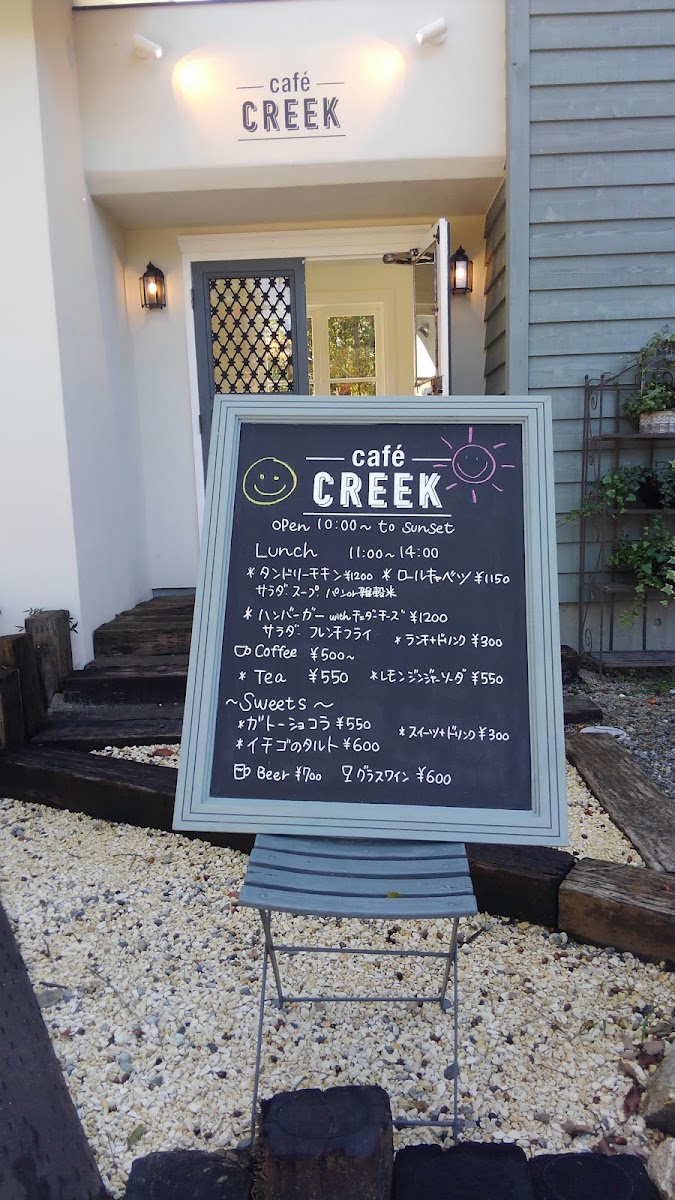 café
CREEK
café
CREEK
OPen 10:00～ to sunset
Lunch 11:00～14:00
* タンドリーチキン ¥1200 * ロールキャベツ ¥1150
サラダ スープ パン or 雑穀米
* ハンバーガー with チェダーチーズ ¥1200
サラダ フレンチフライ * ランチ+ドリンク ¥300
Coffee ¥500～
* Tea ¥550 * レモンジンジャーソーダ ¥550
～Sweets～
* ガトーショコラ ¥550 * スイーツ+ドリンク ¥300
* イチゴのタルト ¥600
Beer ¥700 グラスワイン ¥600